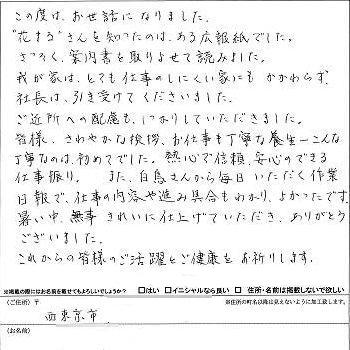 この度は、お世話になりました。
"花まる"さんを知ったのは、ある広報紙でした。
さっそく、案内書を取りよせて読みました。
我が家は、とても仕事のしにくい家にもかかわらず、
社長は、引き受けてくださいました。
ご近所への配慮も、しっかりしていただきました。
皆様、さわやかな挨拶、お仕事も丁寧な養生―こんな
丁寧なのは、初めてでした。熱心で信頼、安心のできる
仕事振り。 また、白鳥さんから毎日いただく作業
日報で、仕事の内容や進み具合もわかり、よかったです。
暑い中、無事きれいに仕上げていただき、ありがとう
ございました。
これからの皆様のご活躍とご健康をお祈りします。
※掲載の際にはお名前を載せてもよろしいでしょうか? □はい □イニシャルなら良い □住所・名前は掲載しないで欲しい
(ご住所) 〒 ※住所の町名以降は見えないように加工致します。
西東京市
(お名前)